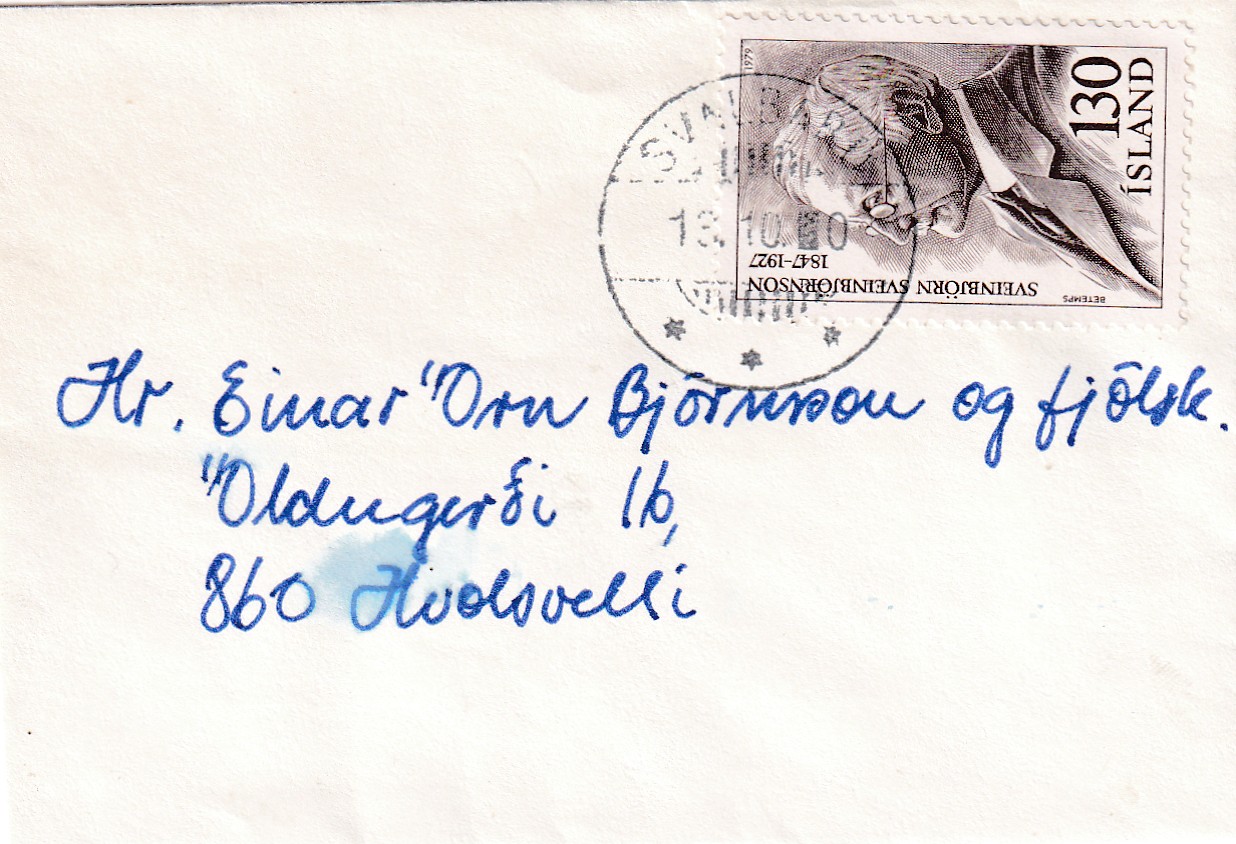 1979
130
ÍSLAND
SVEINBJÖRN SVEINBJÖRNSON
1847-1927
BETEMPS
SVALBARÐ
13.10.80
Hr. Einar Örn Björnsson og fjölsk.
Öldugerði 1b,
860 Hvolsvelli